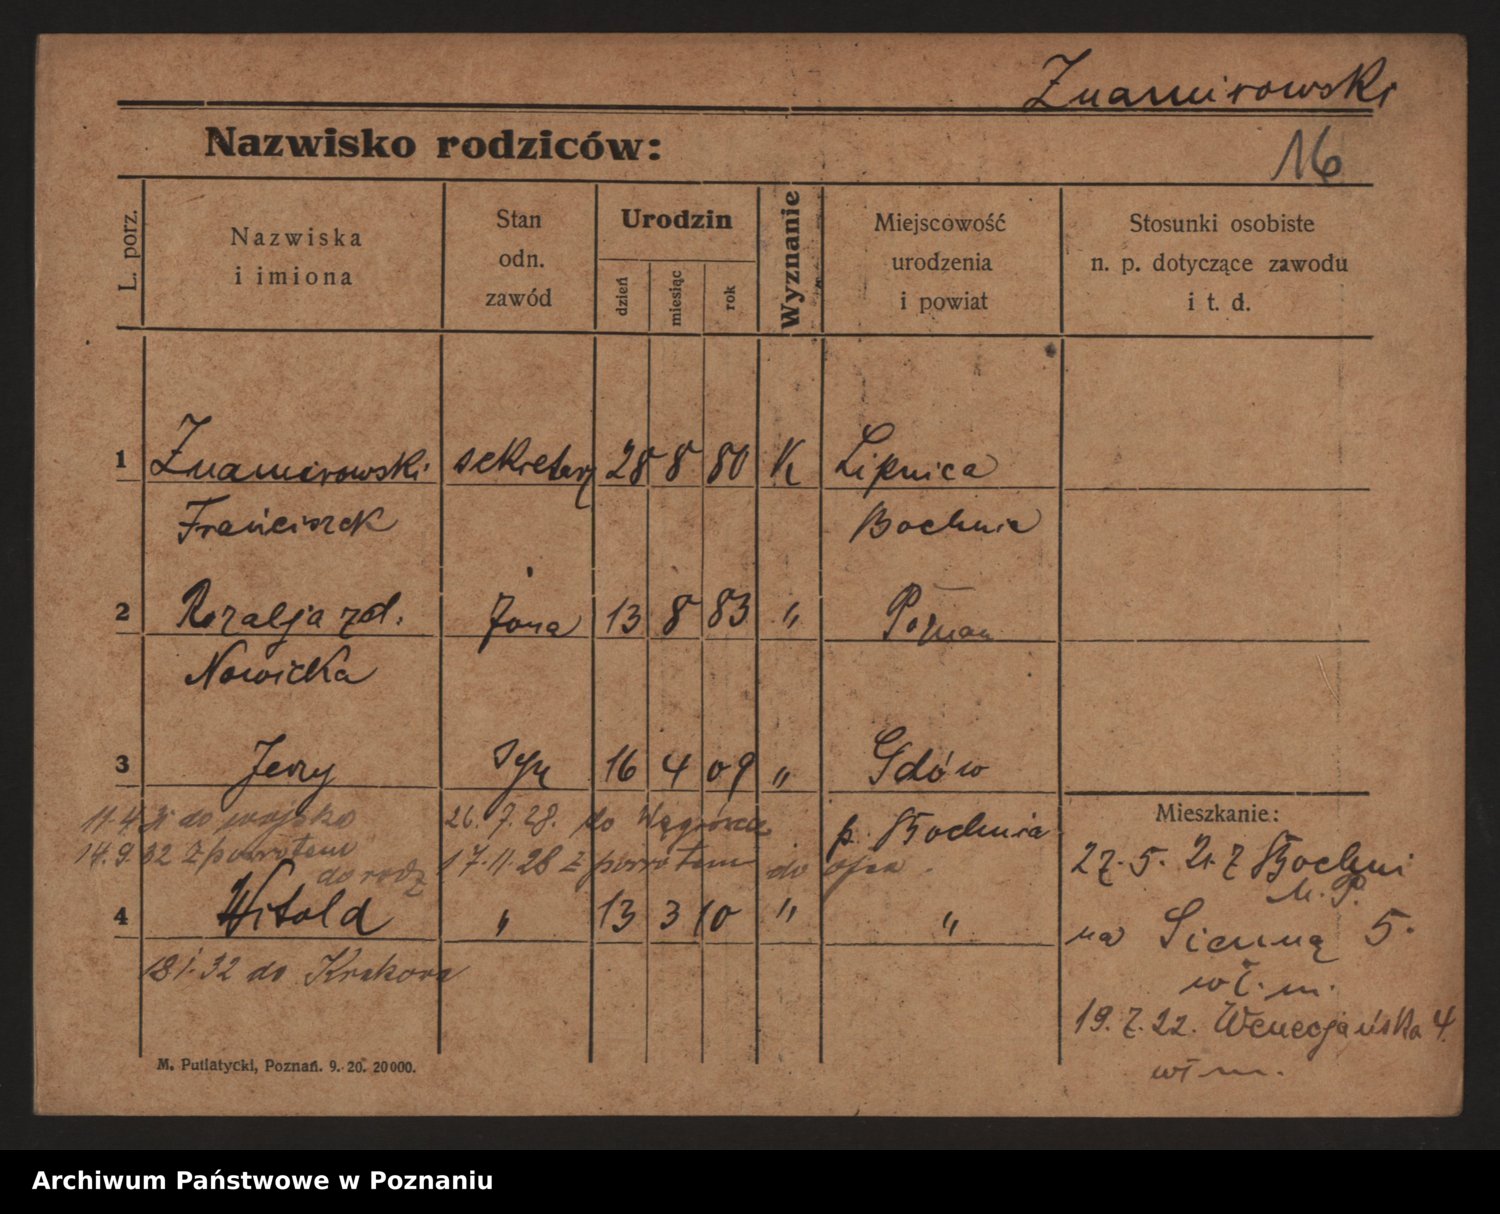 Znamirowski
Nazwisko rodziców:
16
L. porz.
Nazwiska
i imiona
Stan
odn.
zawód
Urodzin
dzień
miesiąc
rok
Wyznanie
Miejscowość
urodzenia
i powiat
Stosunki osobiste
n. p. dotyczące zawodu
i t. d.
1 Znamirowski sekretarz 28 8 80 K Lipnica
Franciszek Bochnia
2 Rozalja zd. żona 13 8 83 " Poznań
Nowicka
3 Jerzy syn 16 4 09 " Gdów
p. Bochnia
11.4. do wojska 26.7.28. do
14.9.32 z powrotem 17.11.28 z powrotem do
do rodz
4 Witold " 13 3 10 " "
18 1.32 do Krakowa
Mieszkanie:
27.5.21. z Bochni
M. P.
na Sienną 5.
wł. m.
19.7.22. Wenecjańska 4.
wł m.
M. Putiatycki, Poznań. 9. 20. 20000.
Archiwum Państwowe w Poznaniu